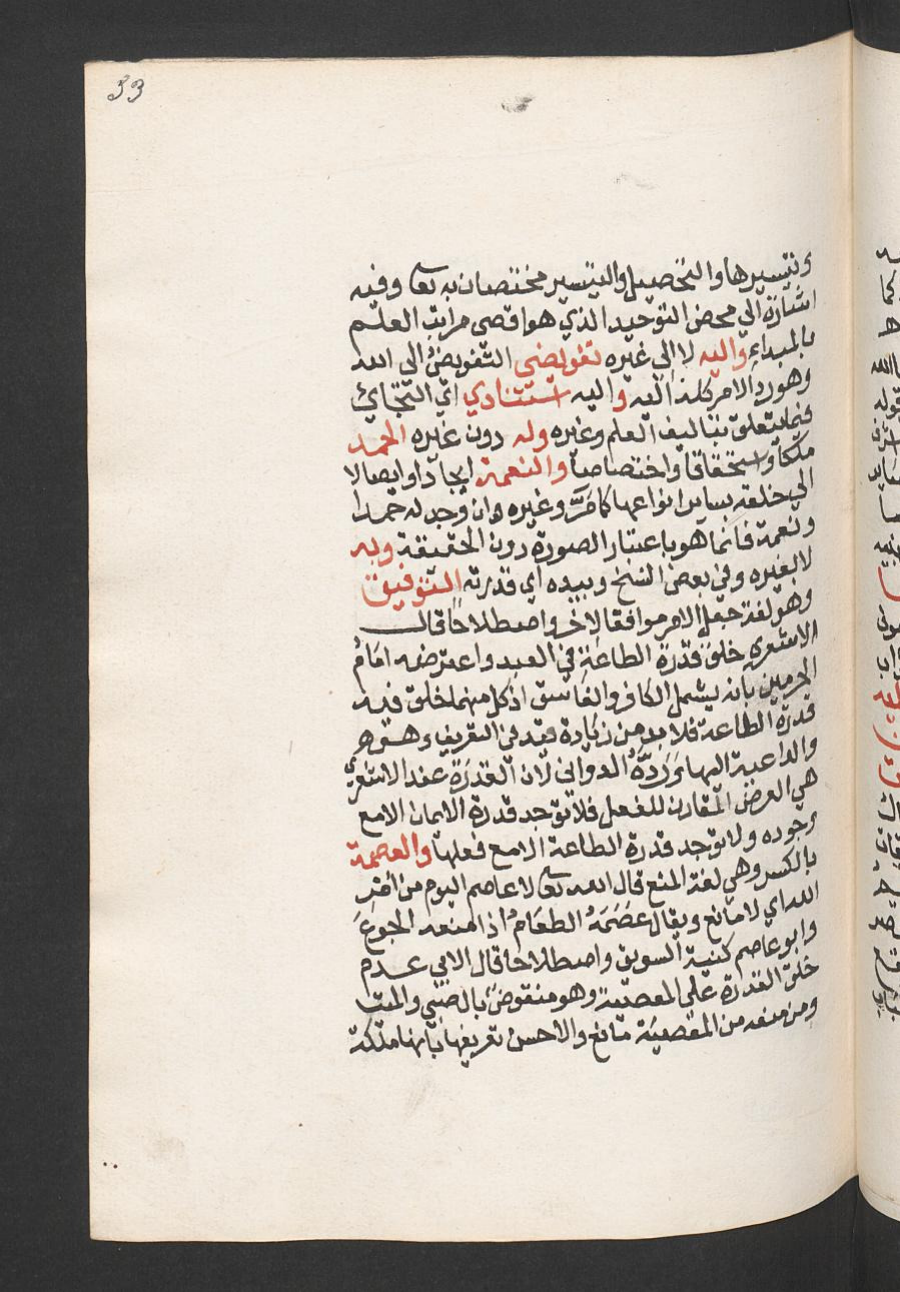 33
وتيسيرها والتحصيل والتيسير مختصان به تعا وفيه
اشارة الي محض التوحيد الذي هو اقصي مراتب العلم
بالمبداء واليه لا الي غيره تفويضي التفويض الي الله
وهو رد الامر كله اليه و اليه استنادي اي التجائ
فيما يتعلق بتاليف العلم وغيره وله دون غيره الحمد
ملكا واستحقاقا واختصاصا والنعمة ايجادا وايصالا
الي خلقه بساير انواعها كما مر وغيره وان وجد له حمدا
ونعمة فانما هو باعتبار الصورة دون الحقيقة وبه
لا بغيره وفي بعض النسخ وبيده اي قدرته التوفيق
وهو لغة جعل الامر موافقا لاخر واصطلاحا قال
الاشعري خلق قدرة الطاعة في العبد واعترضه امام
الحرمين بانه يشمل الكافر والفاسق اذ كل منهما خلق فيه
قدرة الطاعة فلا بد من زيادة قيد في التعريف وهو
والداعية اليها ورده الدواني لان القدرة عند الاشعري
هي العرض المقارن للفعل فلا توجد قدرة الايمان الا مع
وجوده ولا توجد قدرة الطاعة الا مع فعلها والعصمة
بالكسر وهي لغة المنع قال الله تعا لا عاصم اليوم من امر
الله اي لا مانع ويقال عصمه الطعام اذا منعه الجوع
وابو عاصم كنية السويق واصطلاحا قال الابي عدم
خلق القدرة علي المعصية وهو منقوض بالصبي والميت
ومن منعه من المعصية مانع والاحسن تعريفها بانها ملكة